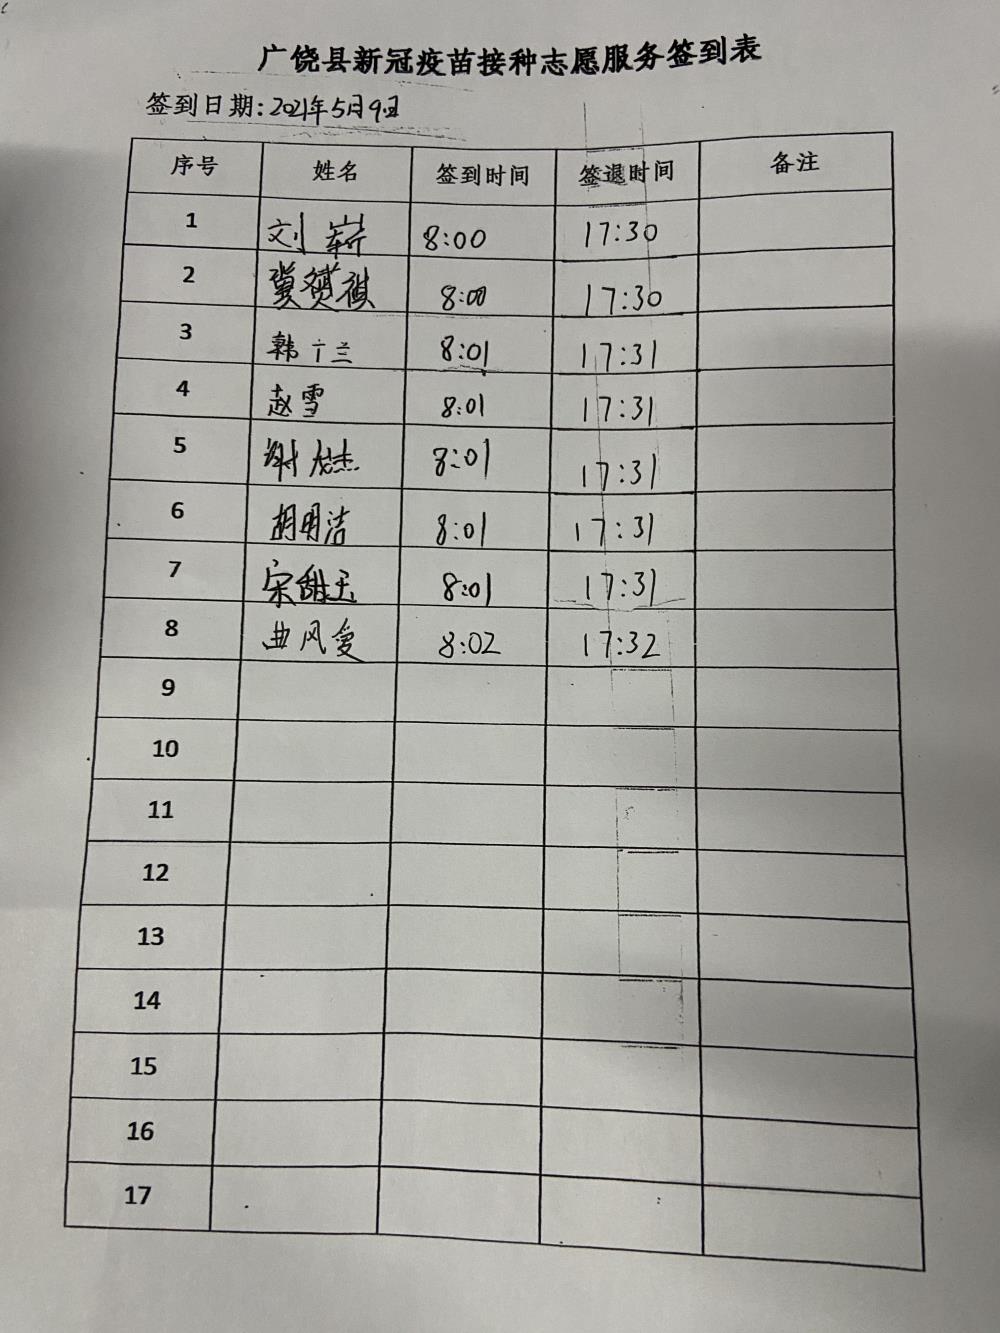 广饶县新冠疫苗接种志愿服务签到表
签到日期:2021年5月9日
序号 姓名 签到时间 签退时间 备注
1 刘崭 8:00 17:30
2 8:00 17:30
3 韩 兰 8:01 17:31
4 赵雪 8:01 17:31
5 谢 杰 8:01 17:31
6 胡明洁 8:01 17:31
7 宋甜玉 8:01 17:31
8 曲风爱 8:02 17:32
9
10
11
12
13
14
15
16
17